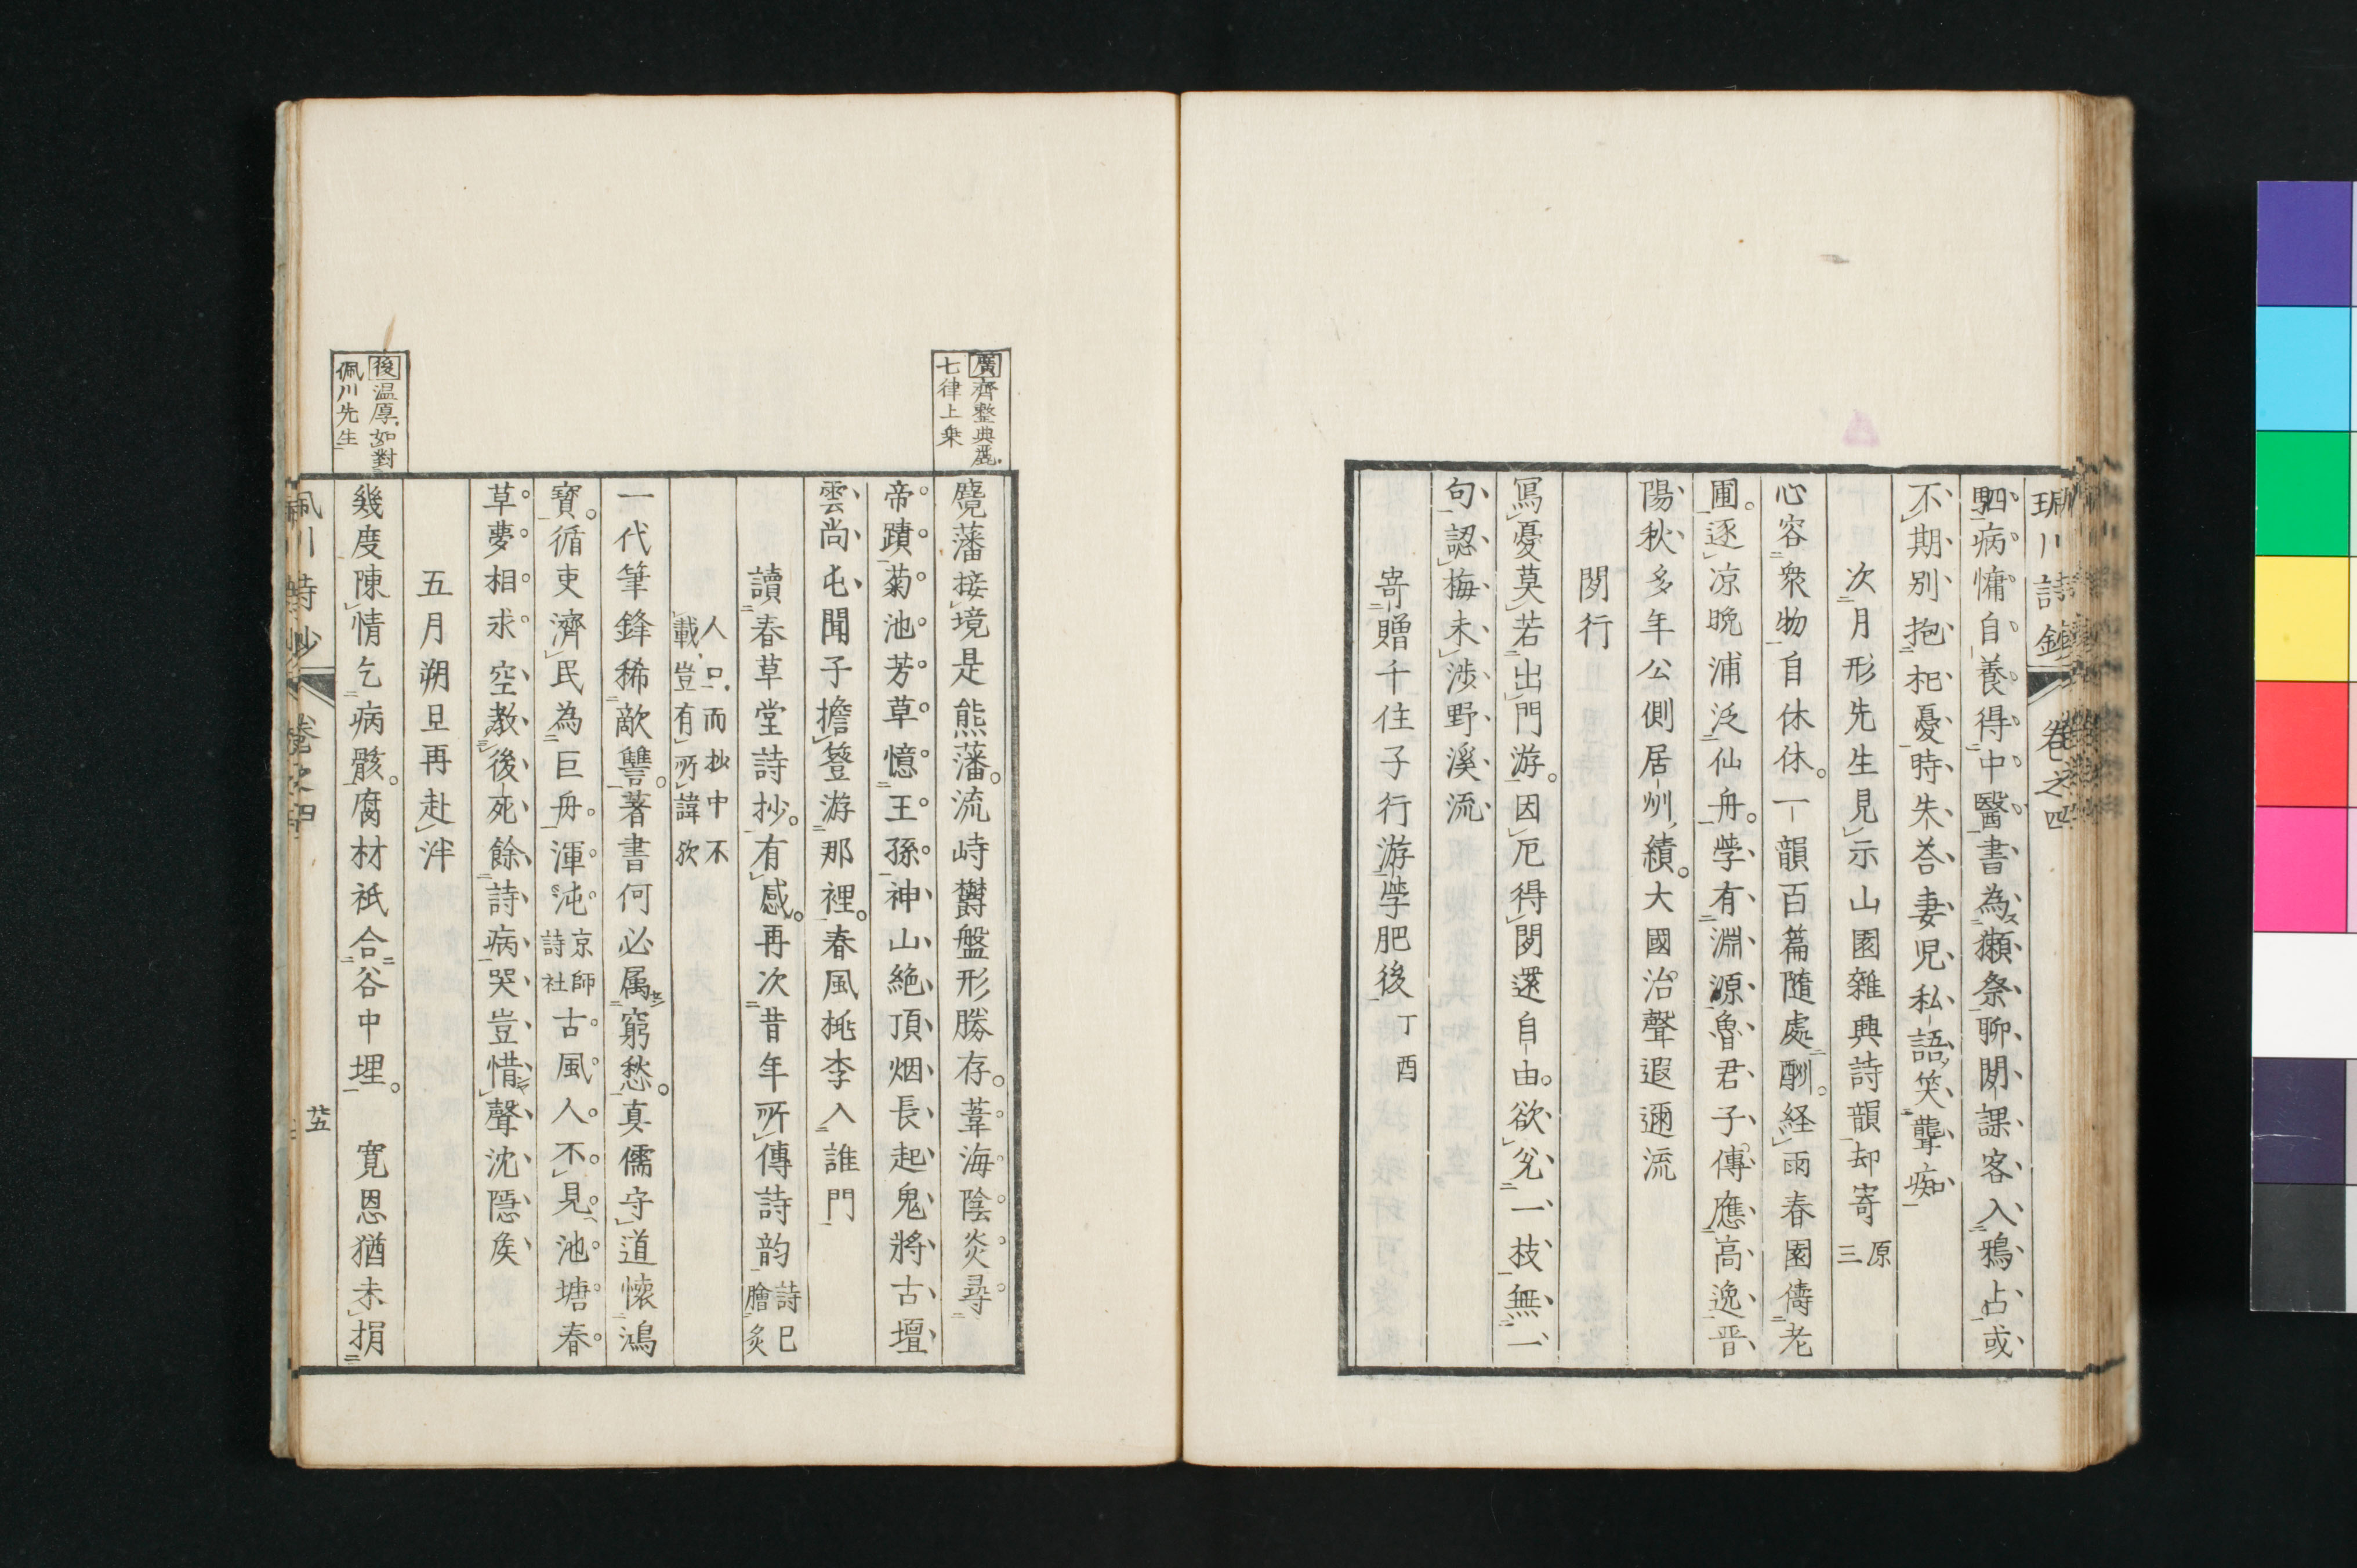 珮川詩鈔 卷之四
駟病慵自養得中醫書為獺祭聊閒課客入鴉占或
不期別抱杞憂時朱荅妻児私語笑聾痴
次月形先生見示山園雜興詩韻却寄 原三
心容衆物自休休一韻百篇隨處酬経雨春園儔老
圃逐凉晩浦泛仙舟學有淵源魯君子傳應高逸晋
陽秋多年公側居州績大國治聲遐邇流
閔行
寫憂莫若出門游因厄得閔還自由欲兊一枝無一
句認梅未渉野溪流
寄贈千住子行游學肥後 丁酉
廣 齊整典麗
七律上乗
麑藩接境是熊藩流峙欝盤形勝存葦海陰炎尋
帝蹟菊池芳草憶王孫神山絶頂烟長起鬼將古壇
雲尚屯聞子擔簦游那裡春風桃李入誰門
讀春草堂詩抄有感再次昔年所傳詩韵 詩巳膾炙
人口而抄中不
載豈有所諱欤
一代筆鋒稀敵讐著書何必属窮愁真儒守道懐鴻
寳循吏濟民為巨舟渾沌 京師詩社 古風人不見池塘春
草夢相求空教後死餘詩病哭豈惜聲沈隱矦
五月朔旦再赴泮
後 温厚如對
佩川先生
幾度陳情乞病骸腐材祇合谷中埋 寛恩猶未捐
佩川詩鈔 卷之四 廿五